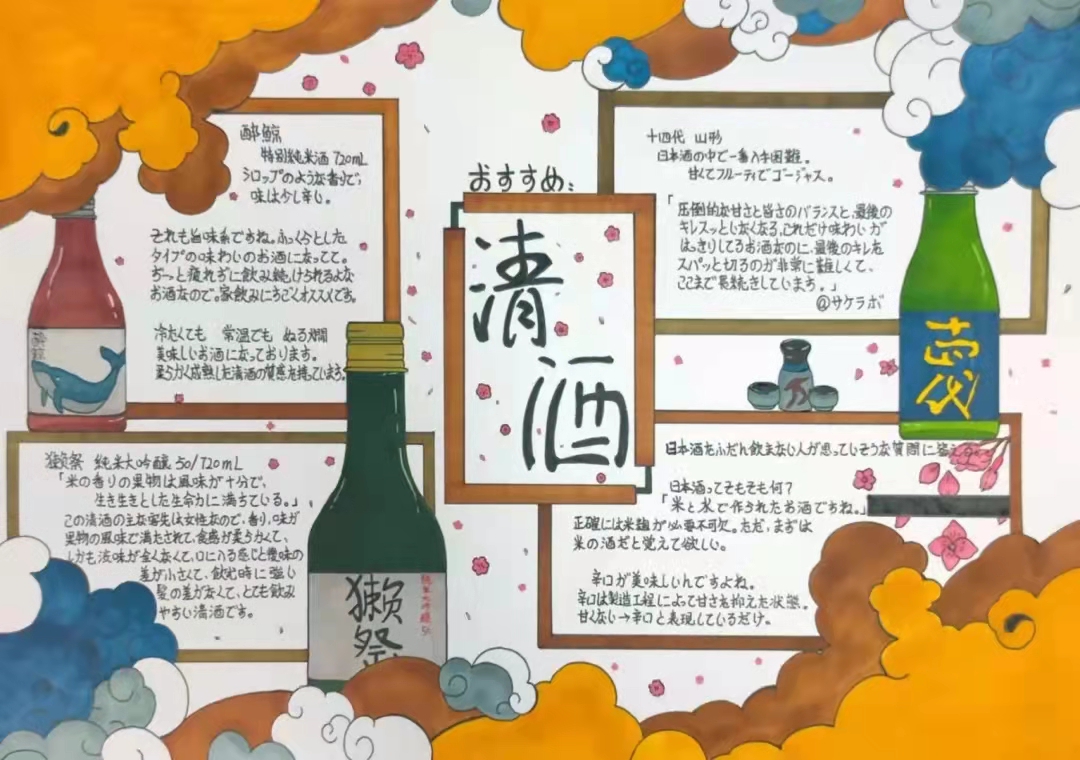 おすすめ:
清酒
酔鯨
特別純米酒 720mL
シロップのような香りで、
味は少し辛い。
それも旨味系ですね。ふっくらとした
タイプの味わいのお酒になってて。
ずーっと疲れずに飲み続けられるよな
お酒なので。家飲みにすごくオススメです。
冷たくても 常温でも ぬる燗
美味しいお酒になっております。
柔らかく成熟した清酒の質感を持っています。
酔鯨
十四代 山形
日本酒の中で一番入手困難。
甘くてフルーティでゴージャス。
「圧倒的な甘さと旨さのバランスと、最後の
キレスッといなくなる。これだけ味わいが
はっきりしてるお酒なのに、最後のキレを
スパッと切るのが非常に難しくて、
ここまで長続きしています。」
@サケラボ
十四代
獺祭 純米大吟醸 50/720mL
「米の香りの果物は風味が十分で、
生き生きとした生命力に満ちている。」
この清酒の主な客先は女性なので、香り、味が
果物の風味で満たされて、食感が柔らかくて、
しかも渋味が全くなくて、口に入る感じと後味の
差が小さくて、飲む時に強い
差がなくて、とても飲み
やすい清酒です。
獺祭
純米大吟醸 50
日本酒をふだん飲まない人が思っていそうな質問に答え
日本酒ってそもそも何?
「米と水で作られたお酒ですね。」
正確には米麹が必要不可欠。ただ、まずは
米の酒だと覚えて欲しい。
辛口が美味しいんですよね。
辛口は製造工程によって甘さを抑えた状態。
甘くない→辛口と表現しているだけ。